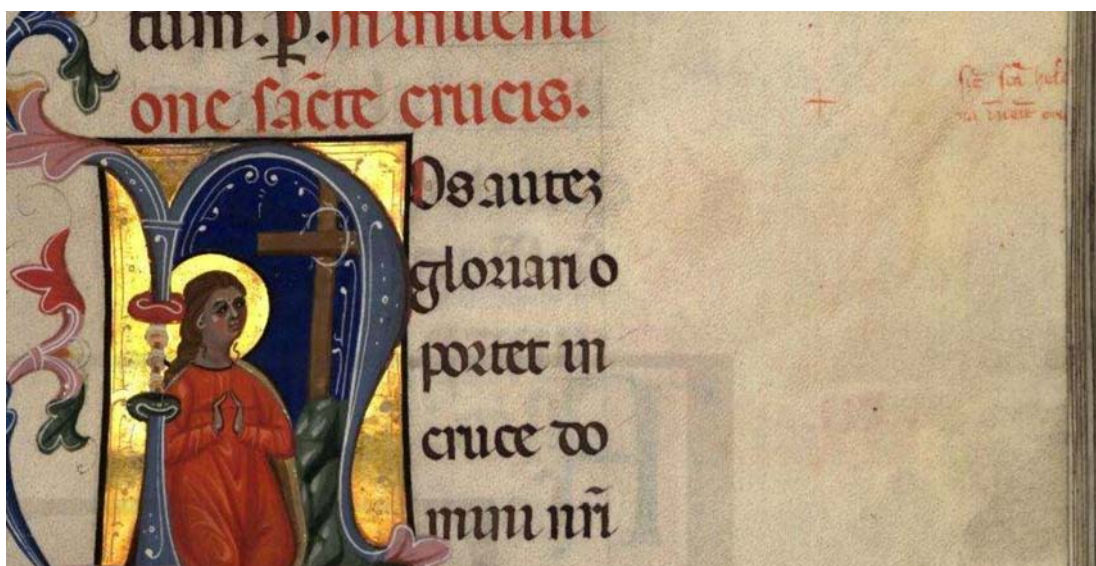 tum. p. in inuenti
one sãcte crucis.
Nos autez
gloriari o
portet in
cruce do
mini nr̃i